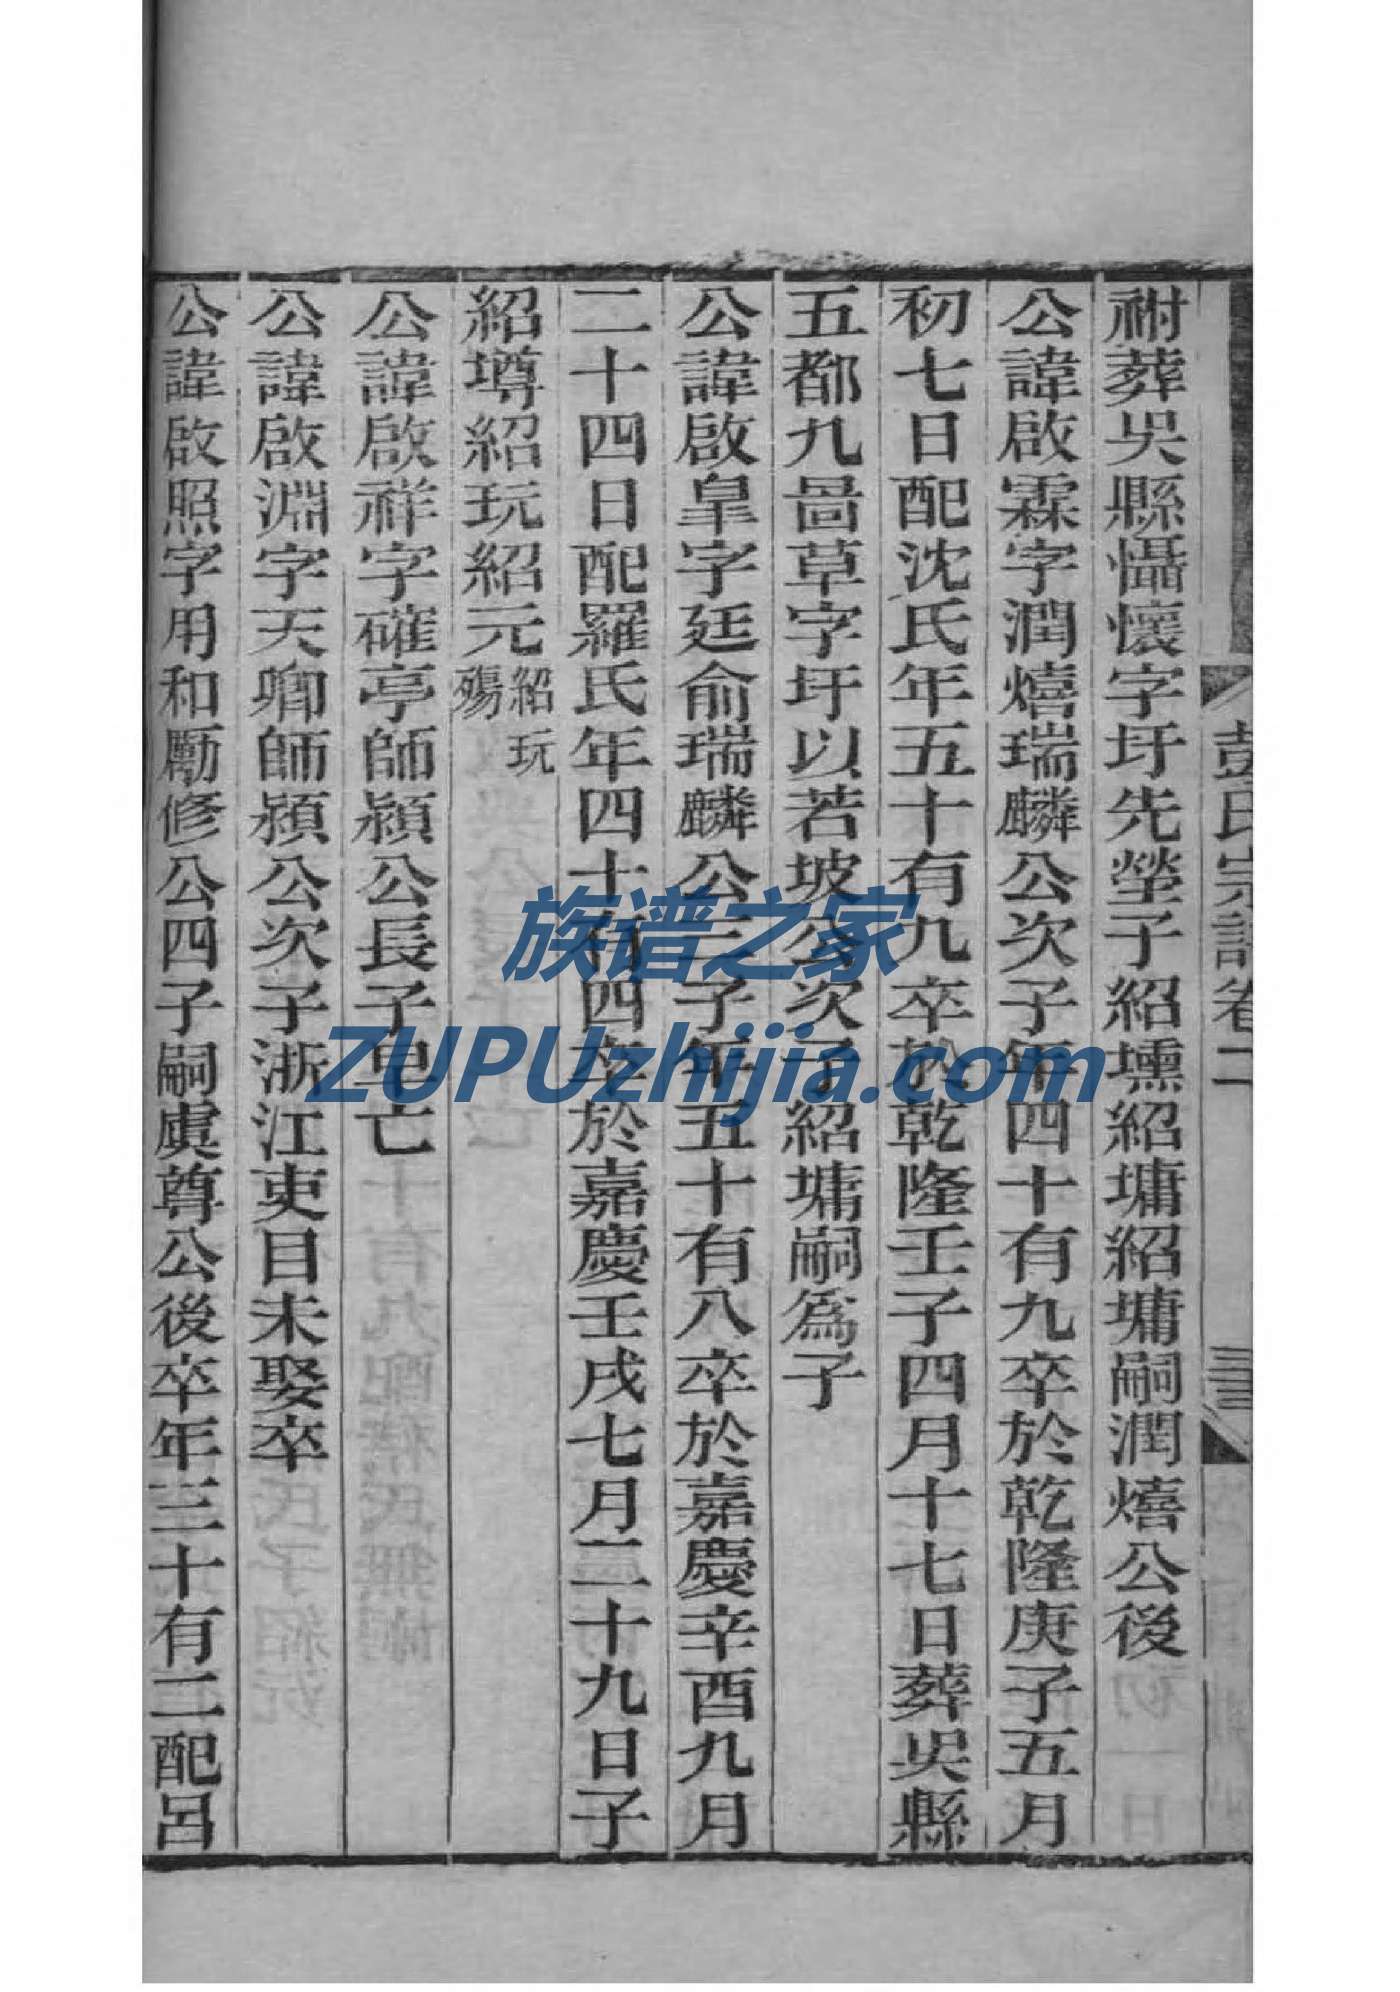 彭氏宗譜卷二
祔葬吳縣懾懷字圩先塋子紹壎紹墉紹墉嗣潤熺公後
公諱啟霖字潤熺瑞麟公次子年四十有九卒於乾隆庚子五月
初七日配沈氏年五十有九卒於乾隆壬子四月十七日葬吳縣
五都九啚草字圩以若坡公次子紹墉嗣爲子
公諱啟皇字廷俞瑞麟公三子年五十有八卒於嘉慶辛酉九月
二十四日配羅氏年四十有四卒於嘉慶壬戌七月二十九日子
紹墫紹玩紹元紹玩殤
公諱啟祥字確亭師潁公長子早亡
公諱啟淵字天卿師潁公次子浙江吏目未娶卒
公諱啟照字用和勵修公四子嗣虞尊公後卒年三十有二配呂
族谱之家
ZUPUzhijia.com